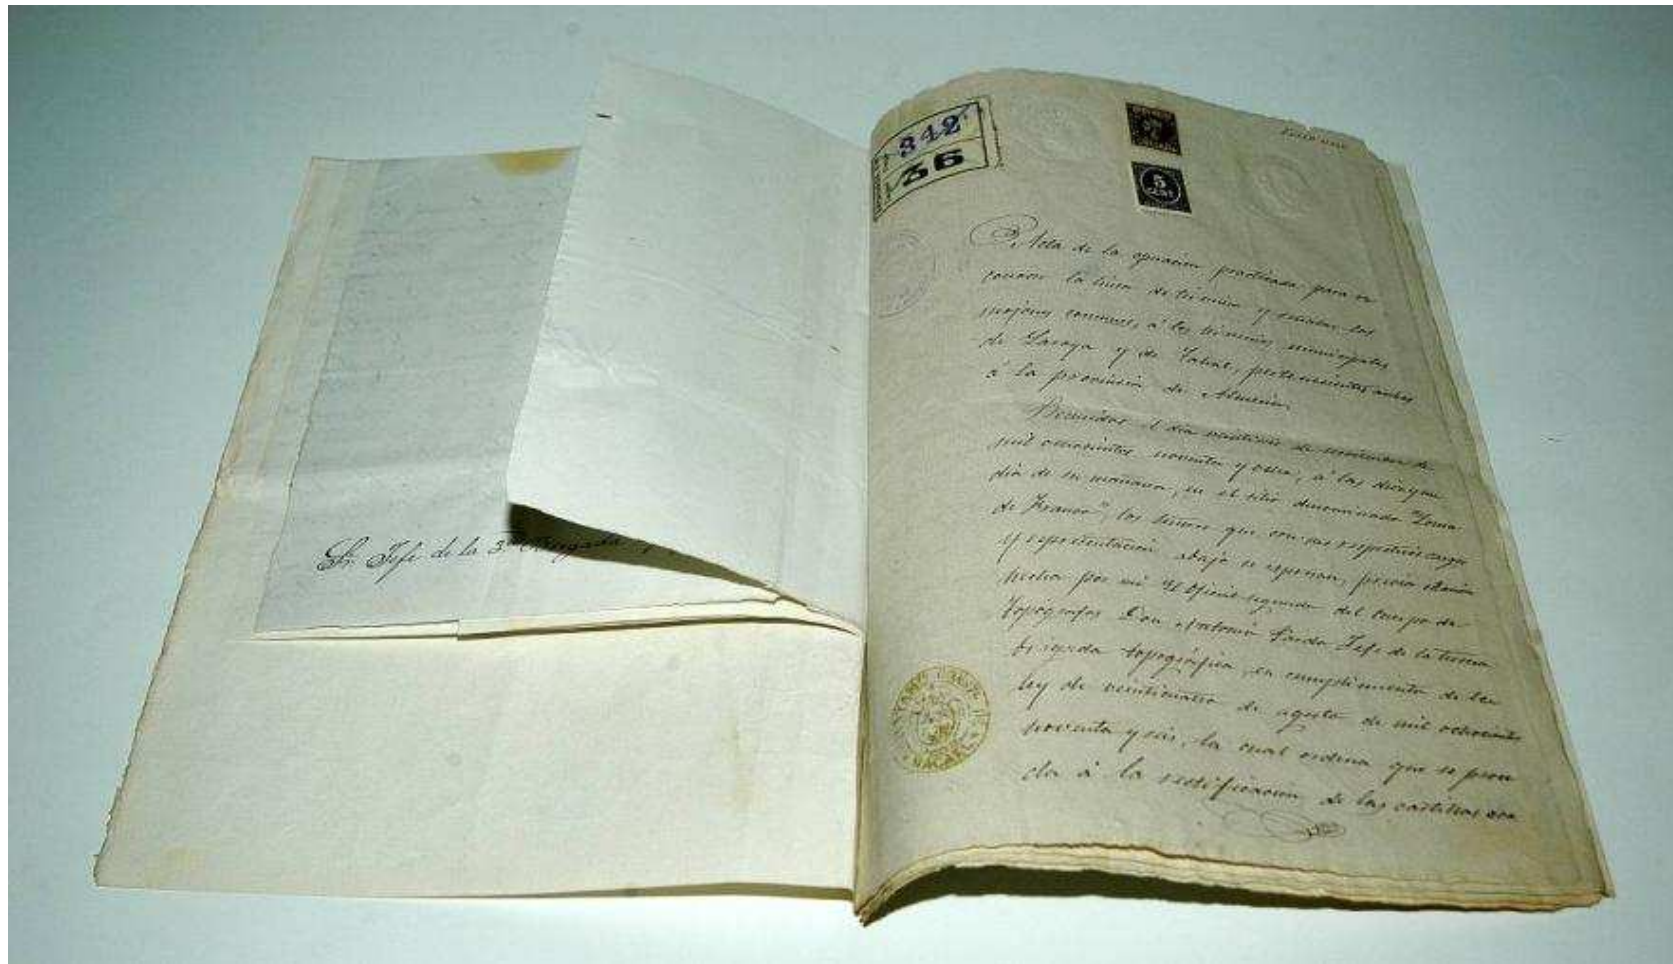 Sr. Jefe de la 3ª Brigada
342
36
5
CENTS
Acta de la operación practicada para re
conocer la línea de término y señalar los
mojones comunes á los términos municipales
de Laroya y de Tahal, pertenecientes ambos
á la provincia de Almería.
Reunidos el día veintidos de
mil ochocientos noventa y ocho, á las diez y
día de su mañana, en el sitio denominado "Loma
de Franco", los señores que con sus respectivos cargos
y representación abajo se expresan, previa citación
hecha por mi el oficial segundo del Cuerpo de
Topógrafos Don Antonio Pardo Jefe de la tercera
brigada topográfica, en cumplimiento de la
ley de veinticuatro de agosto de mil ochocientos
noventa y seis, la cual ordena que se proce
da á la rectificación de las cartillas